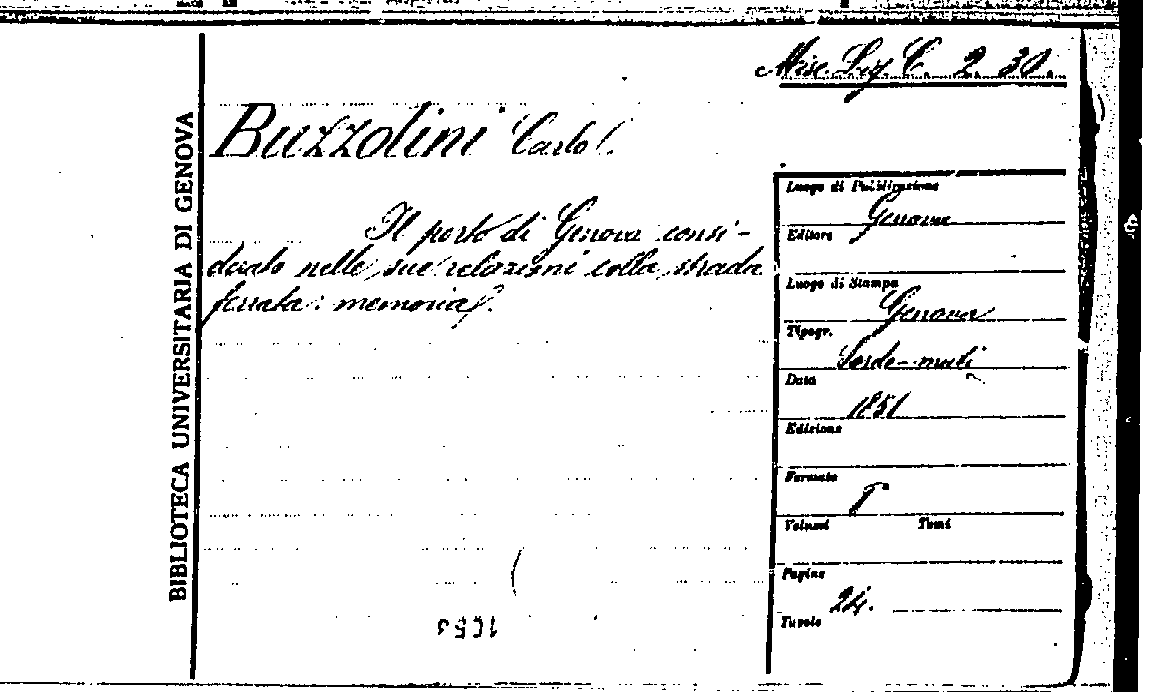 Misc. Lig. C. 2. 30.
BIBLIOTECA UNIVERSITARIA DI GENOVA
Buzzolini Carlo
Il porto di Genova consi-
derato nelle sue relazioni colla strada
ferrata: memoria.
Luogo di Pubblicazione
Genova
Editore
Luogo di Stampa
Genova
Tipogr.
Sordo-muti
Data
1851
Edizione
Formato
Volumi Tomi
Pagine
24.
Tavole